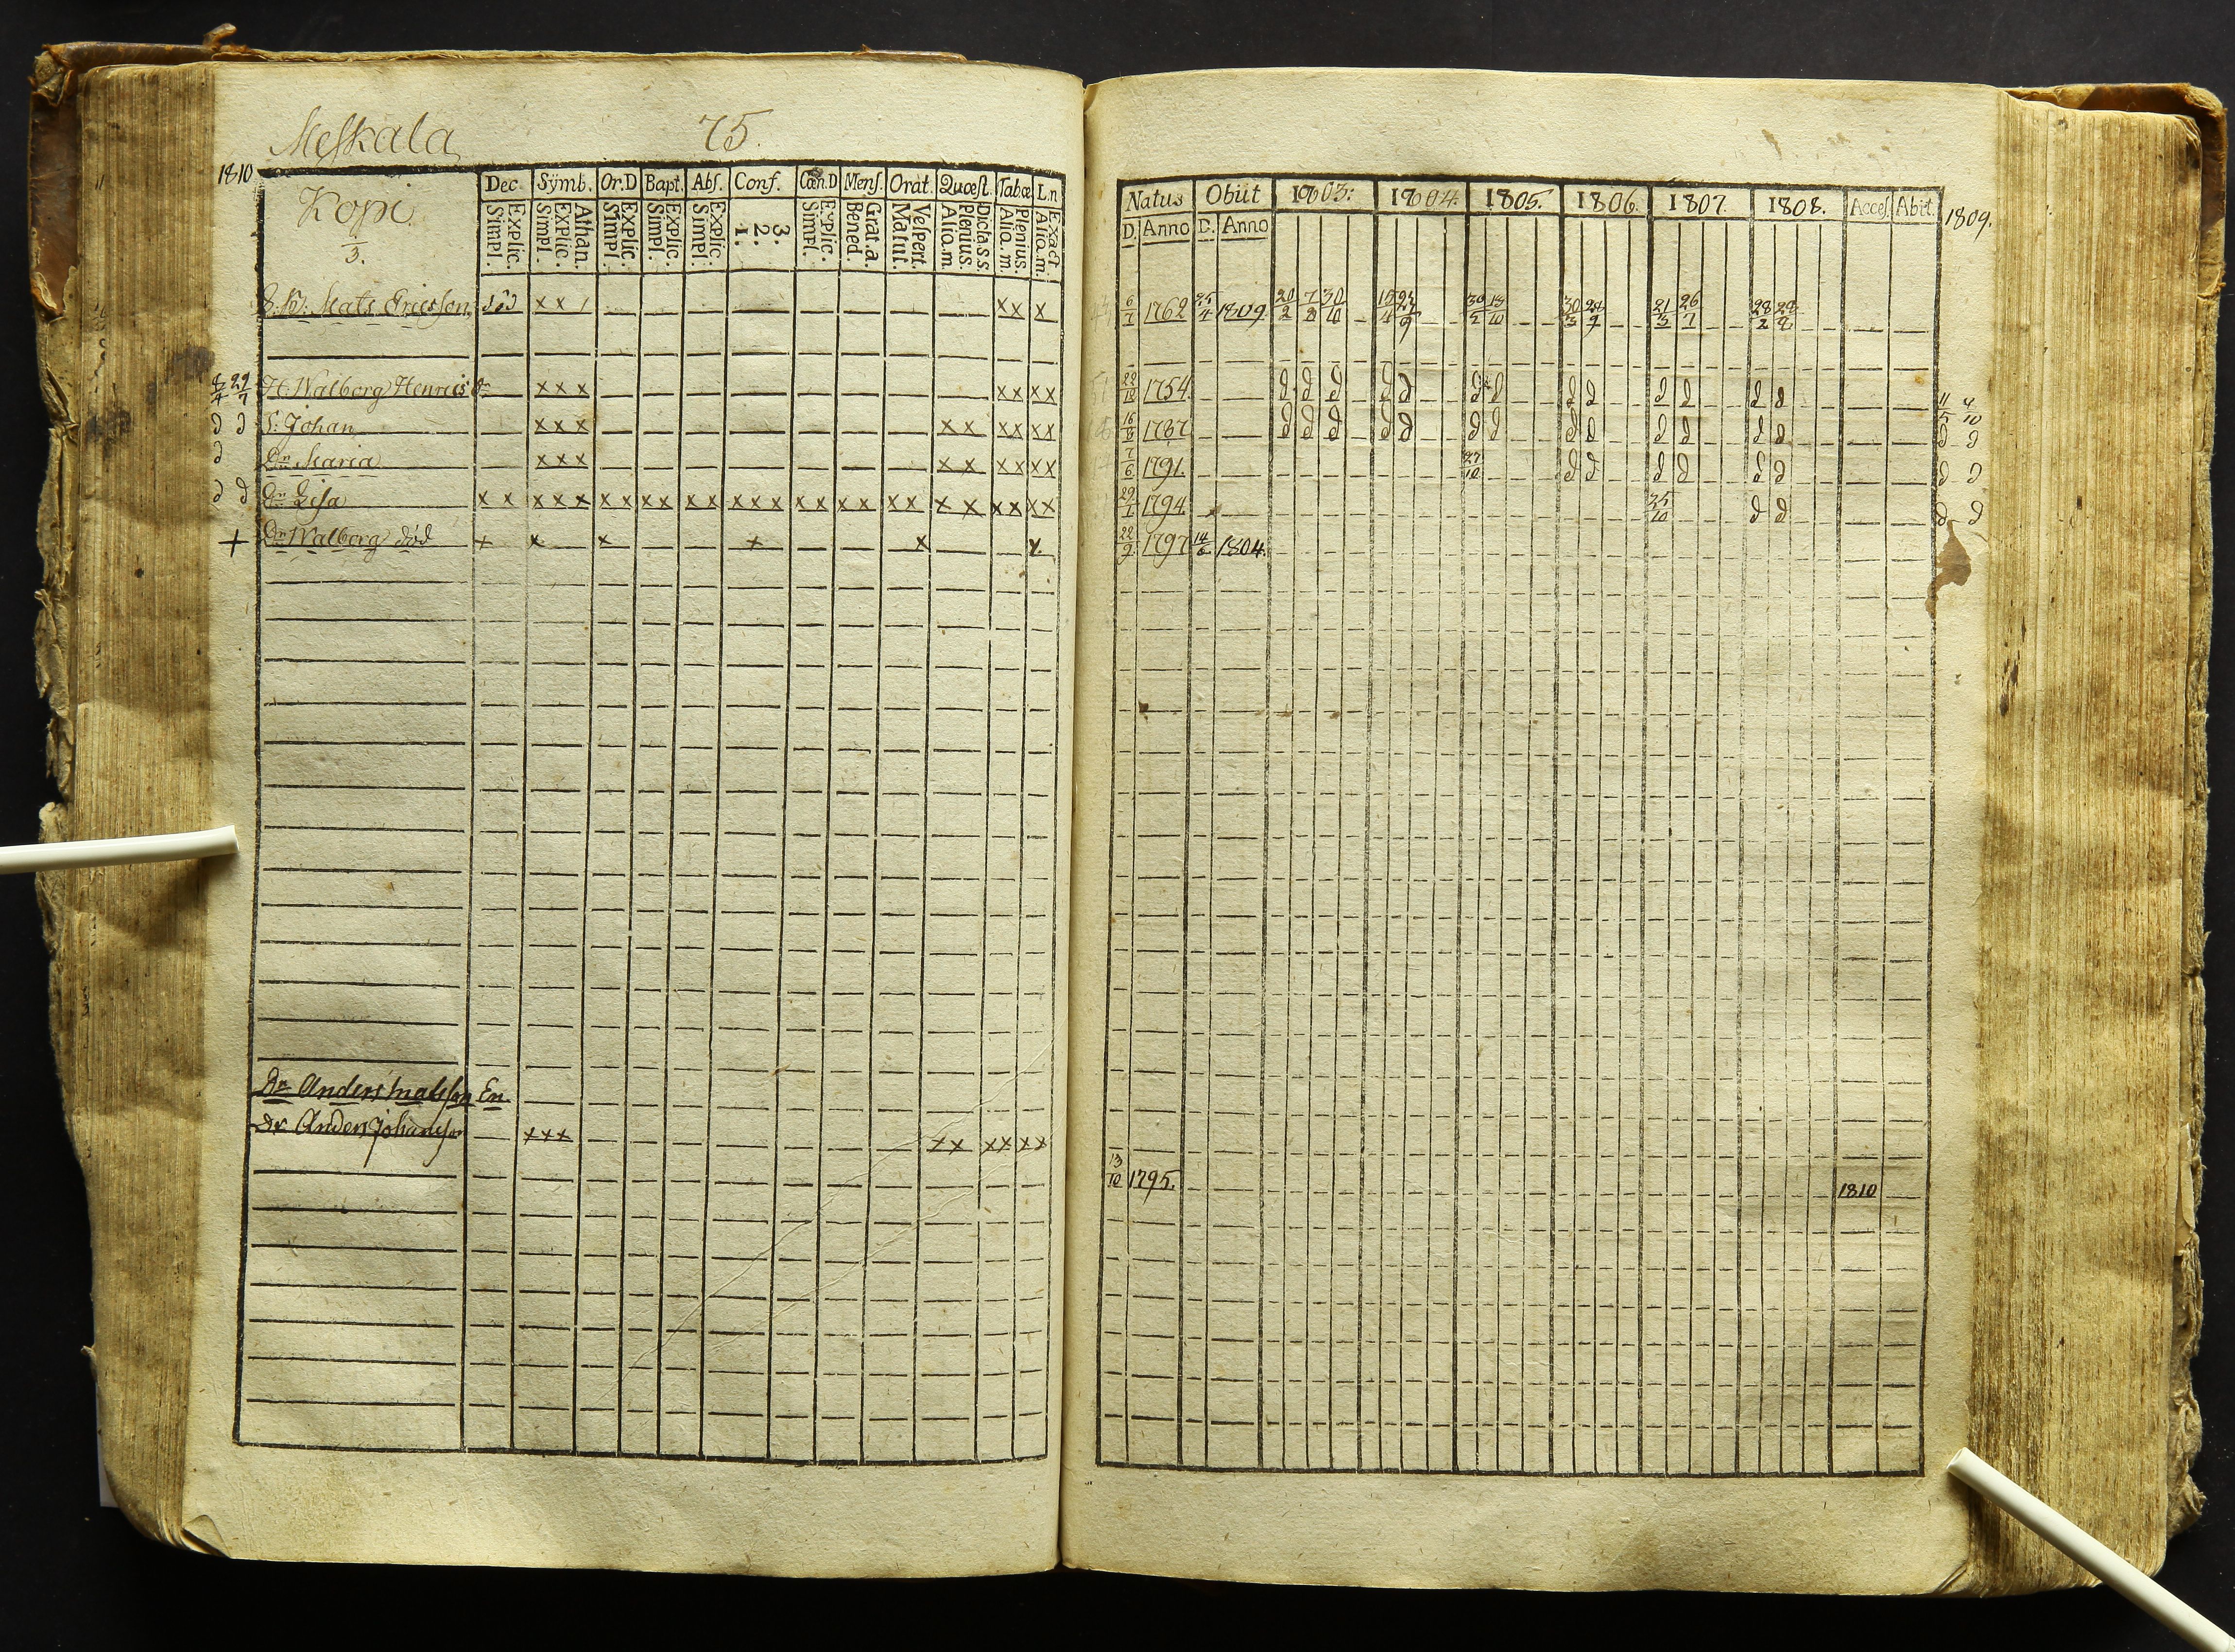 Meskala 75.
1810
Kopi
3.
Dec. Symb. Or.D Bapt. Abs. Conf. Cœn.D Mens. Orat. Quœst. Tab.œ L.n
Explic. Simpl. Athan. Explic. Simpl. Explic. Simpl. Explic. Simpl. Explic. Simpl. 3. 2. 1. Explic. Simpl. Grat.a. Bened. Vespert. Matut. Dicta.s.s. Plenius. Aliq.m. Plenius. Aliq.m. Exact. Aliq.m.
Mats Ericsson död x x / x x x
8/4 29/7 H. Walborg Henricsdr x x x x x x x
d d S: Johan x x x x x x x x x
d Dr Maria x x x x x x x x x
d d Dr Lisa x x x x x x x x x x x x x x x x x x x x x x x x x x
+ Dr Walborg död + x x + x x
Dr Anders Matsson En
dr Anders Johansson x x x x x x x x x
Natus Obiit 1803: 1804. 1805. 1806. 1807. 1808. Acces. Abit. 1809.
D. Anno D. Anno
6/1 1762 25/4 1809 20/2 7/8 30/10 30/2 13/10 30/3 28/9 21/3 26/7 28/2 28/8
1754 d d d d d d d d d d d d d 11/5 4/10
16/8 1787 d d d d d d d d d d d d d d d
7/6 1791 27/10 d d d d d d d d
29/1 1794 25/10 d d d d
22/9 1797 14/6 1804.
13/10 1795. 1810